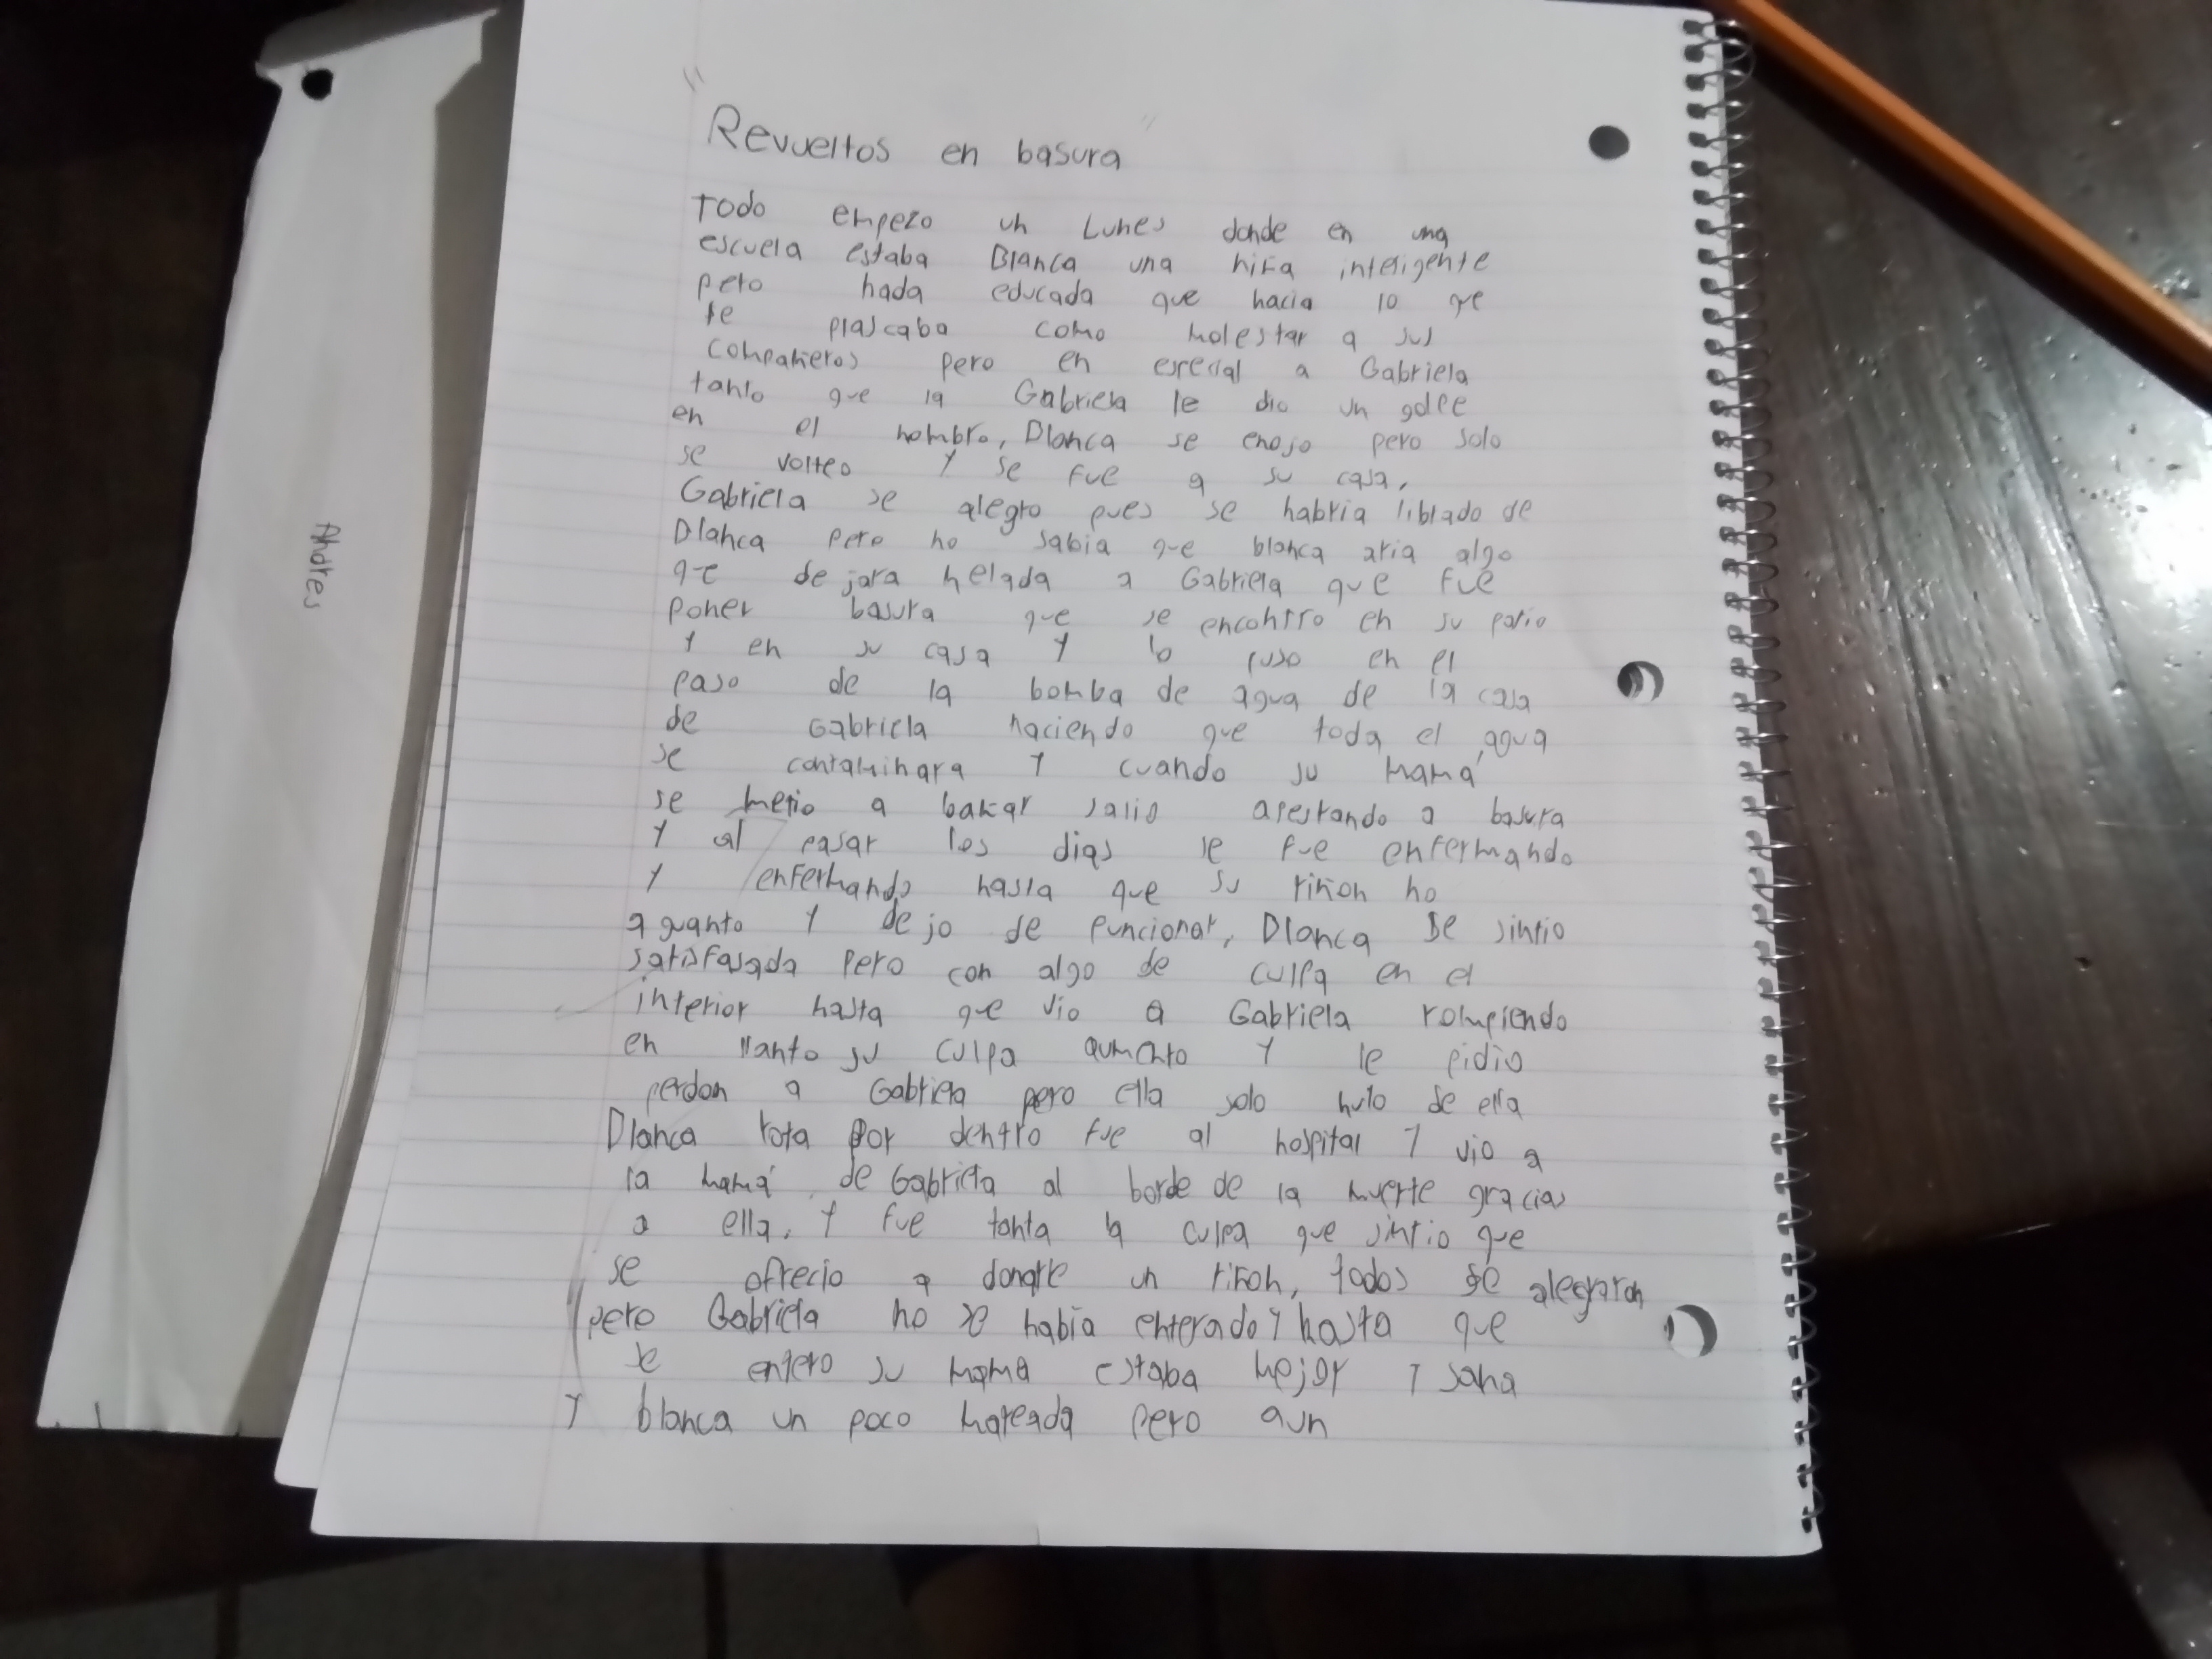 "Revueltos en basura"
Todo empezo un Lunes donde en una
escuela estaba Blanca una niña inteligente
pero nada educada que hacia lo que
le plascaba como molestar a sus
compañeros pero en especial a Gabriela
tanto que la Gabriela le dio un golpe
en el hombro, Blanca se enojo pero solo
se volteo y se fue a su casa,
Gabriela se alegro pues se habria liblado de
Blanca pero no sabia que blanca aria algo
que dejara helada a Gabriela que fue
poner basura que se encontro en su patio
y en su casa y lo puso en el
paso de la bomba de agua de la casa
de Gabriela haciendo que toda el agua
se contaminara y cuando su mamá
se metio a bañar salio apestando a basura
y al pasar los dias se fue enfermando
y enfermando hasta que su riñon no
aguanto y dejo de funcionar, Blanca se sintio
satisfasada pero con algo de culpa en el
interior hasta que vio a Gabriela rompiendo
en llanto su culpa aumento y le pidio
perdon a Gabriela pero ella solo hullo de ella
Blanca rota por dentro fue al hospital y vio a
la mamá de Gabriela al borde de la muerte gracias
a ella, y fue tanta la culpa que sintio que
se ofrecio a donarle un riñon, todos se alegraron
pero Gabriela no se habia enterado y hasta que
se entero su mama estaba mejor y sana
y blanca un poco mareada pero aun
Andres